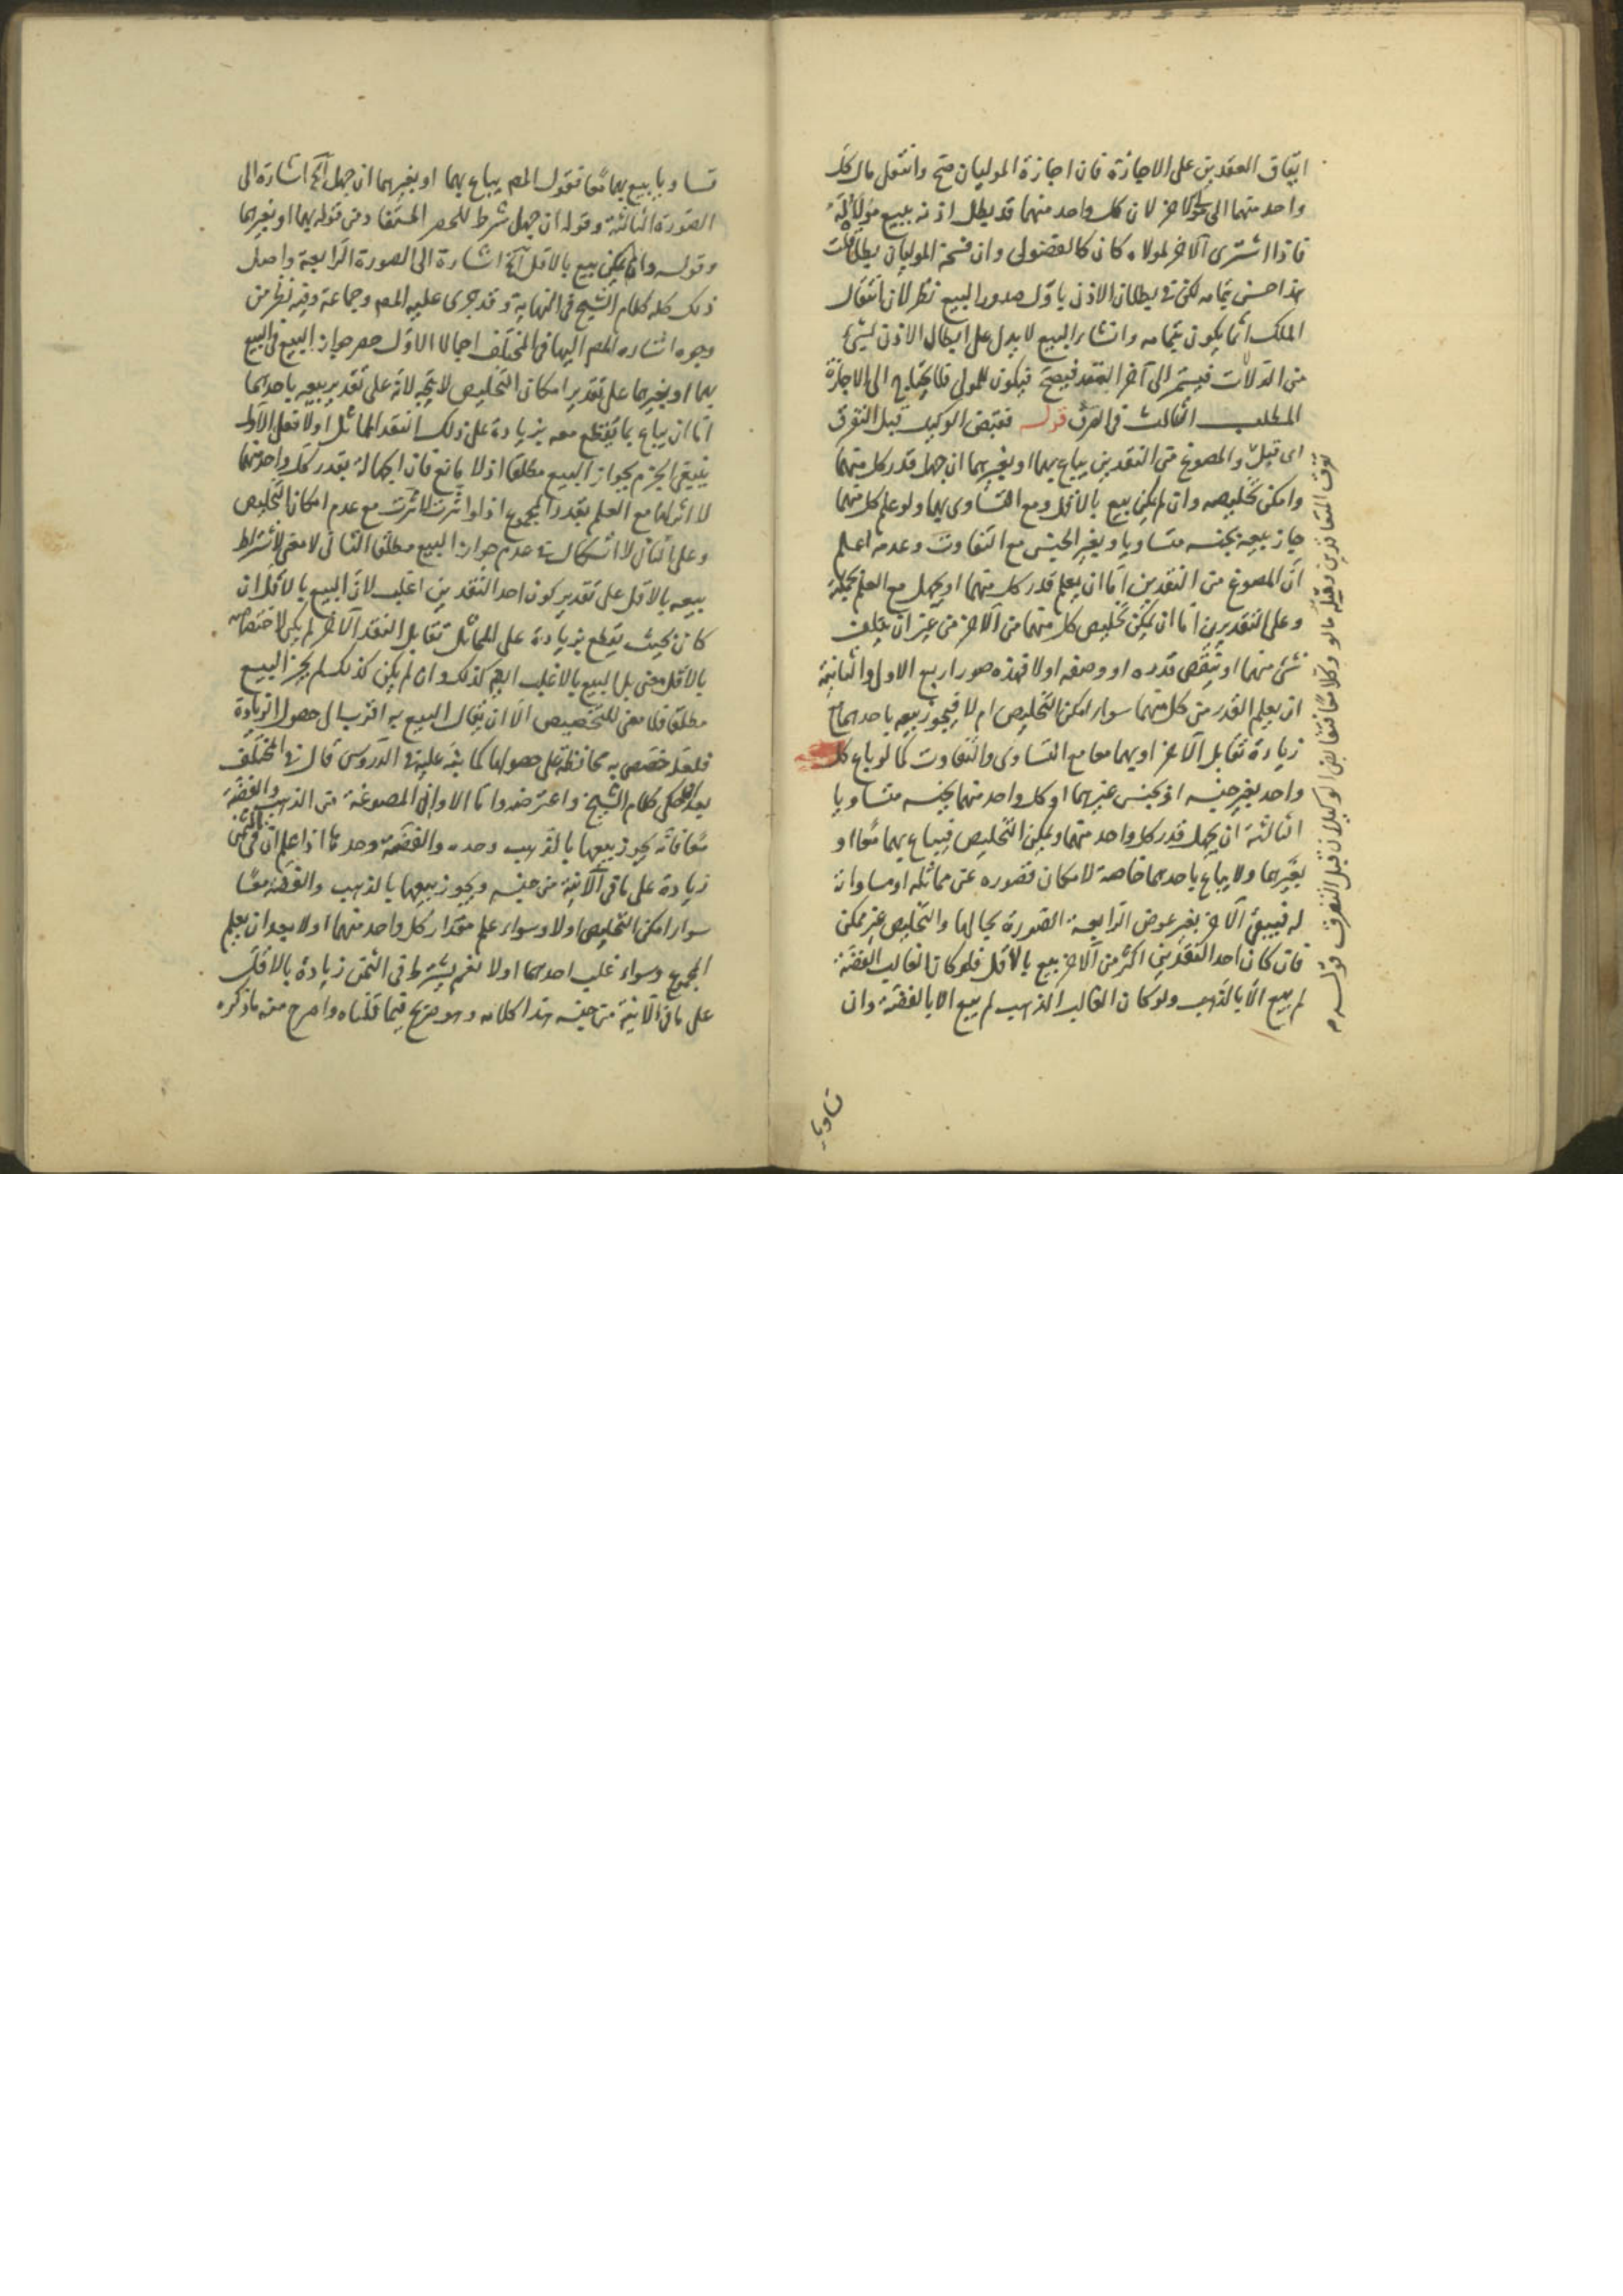 اتفاق العقدين على الاجازة فان اجازة الموليان صح وانتقل مال كل
واحد منهما الى مولى الآخر لان كل واحد منهما قد بطل اذنه ببيع مولاه له
فاذا اشترى الآخر لمولاه كان كالفضولى وان فسخه الموليان بطل قلت
هذا حسن بتمامه لكن فى بطلان الاذن باول صدور البيع نظر لان انتقال
الملك انما يكون بتمامه وانشاء البيع لا يدل على ابطال الاذن بشئ
من الدلالات فيستمر الى آخر العقد فيصح فيكون للمولى فلا يحتاج الى الاجازة
المطلب الثالث فى الصرف قوله فقبض الوكيل قبل التفرق
تفرق المتعاقدين ومثله ما لو وكلا معا فتقابض الوكيلان قبل التفرق قوله
اى قبل والمصوغ من النقدين يباع بهما او بغيرهما ان جهل قدر كل منهما
وامكن تخليصه وان لم يكن بيع بالاقل ومع التساوى بهما ولو علم كل منهما
جاز بيعه بجنسه متساويا وبغير الجنس مع التفاوت وعدمه اعلم
ان المصوغ من النقدين اما ان يعلم قدر كل منهما او يجهل مع العلم بجملته
وعلى التقديرين اما ان يمكن تخليص كل منهما من الآخر من غير ان يتلف
شئ منهما او ينقص قدره او وصفه اولا فهذه صور اربع الاول والثانية
ان يعلم القدر من كل منهما سواء امكن التخليص ام لا فيجوز بيعه باحدهما مع
زيادة تقابل الآخر او بهما معا مع التساوى والتفاوت كما لو باع كل
واحد بغير جنسه او بجنس غيرهما او كل واحد منهما بجنسه متساويا
الثالثة ان يجهل قدر كل واحد منهما ويمكن التخليص فيباع بهما معا او
بغيرهما ولا يباع باحدهما خاصة لامكان قصوره عن مماثله او مساواته
له فيبقى الآخر بغير عوض الرابعة الصورة بحالها والتخليص غير ممكن
فان كان احد النقدين اكثر من الآخر بيع بالاقل فلو كان الغالب الفضة
لم يبع الا بالذهب ولو كان الغالب الذهب لم يبع الا بالفضة وان
تساويا
تساويا بيع بهما معا فقول المص يباع بهما او بغيرهما ان جهل آلخ اشارة الى
الصورة الثالثة وقوله ان جهل شرط للحصر المستفاد من قوله بهما او بغيرهما
وقوله وان لم يكن بيع بالاقل آلخ اشارة الى الصورة الرابعة واصل
ذلك كله كلام الشيخ فى النهاية وقد جرى عليه المص وجماعة وفيه نظر من
وجوه اشار المص اليها فى المختلف اجمالا الاول حصر جواز البيع فى البيع
بهما او بغيرهما على تقدير امكان التخليص لا يتجه لانه على تقدير بيعه باحدهما
اما ان يباع بما يقطع معه بزيادة على ذلك النقد المماثل اولا فعلى الاول
ينبغى الجزم بجواز البيع مطلقا اذ لا مانع فان الجهالة بقدر كل واحد منهما
لا اثر لها مع العلم بقدر المجموع اذ لو اثرت لاثرت مع عدم امكان التخليص
وعلى الثانى لا اشكال فى عدم جواز البيع مطلقا الثانى لا معنى لاشتراط
بيعه بالاقل على تقدير كون احد النقدين اغلب لان البيع بالاقل ان
كان بحيث يقطع بزيادة على المماثل تقابل النقد الآخر لم يكن لاختصاصه
بالاقل معنى بل البيع بالاغلب ايضا كذلك وان لم يكن كذلك لم يجز البيع
مطلقا فلا معنى للتخصيص الا ان يقال البيع به اقرب الى حصول الزيادة
فلعله خصص به محافظة على حصولها كما نبه عليه فى الدروس قال فى المختلف
بعد ان حكى كلام الشيخ واعترضه واما الاوانى المصوغة من الذهب والفضة
معا فانه يجوز بيعها بالذهب وحده والفضة وحدها اذا علم ان فى الثمن
زيادة على ما فى الآنية من جنسه ويجوز بيعها بالذهب والفضة معا
سواء امكن التخليص اولا وسواء علم مقدار كل واحد منهما اولا بعد ان يعلم
المجموع وسواء غلب احدهما اولا نعم يشترط فى الثمن زيادة بالاقل
على ما فى الآنية من جنسه هذا كلامه وهو صريح فيما قلناه واصرح منه ما ذكره